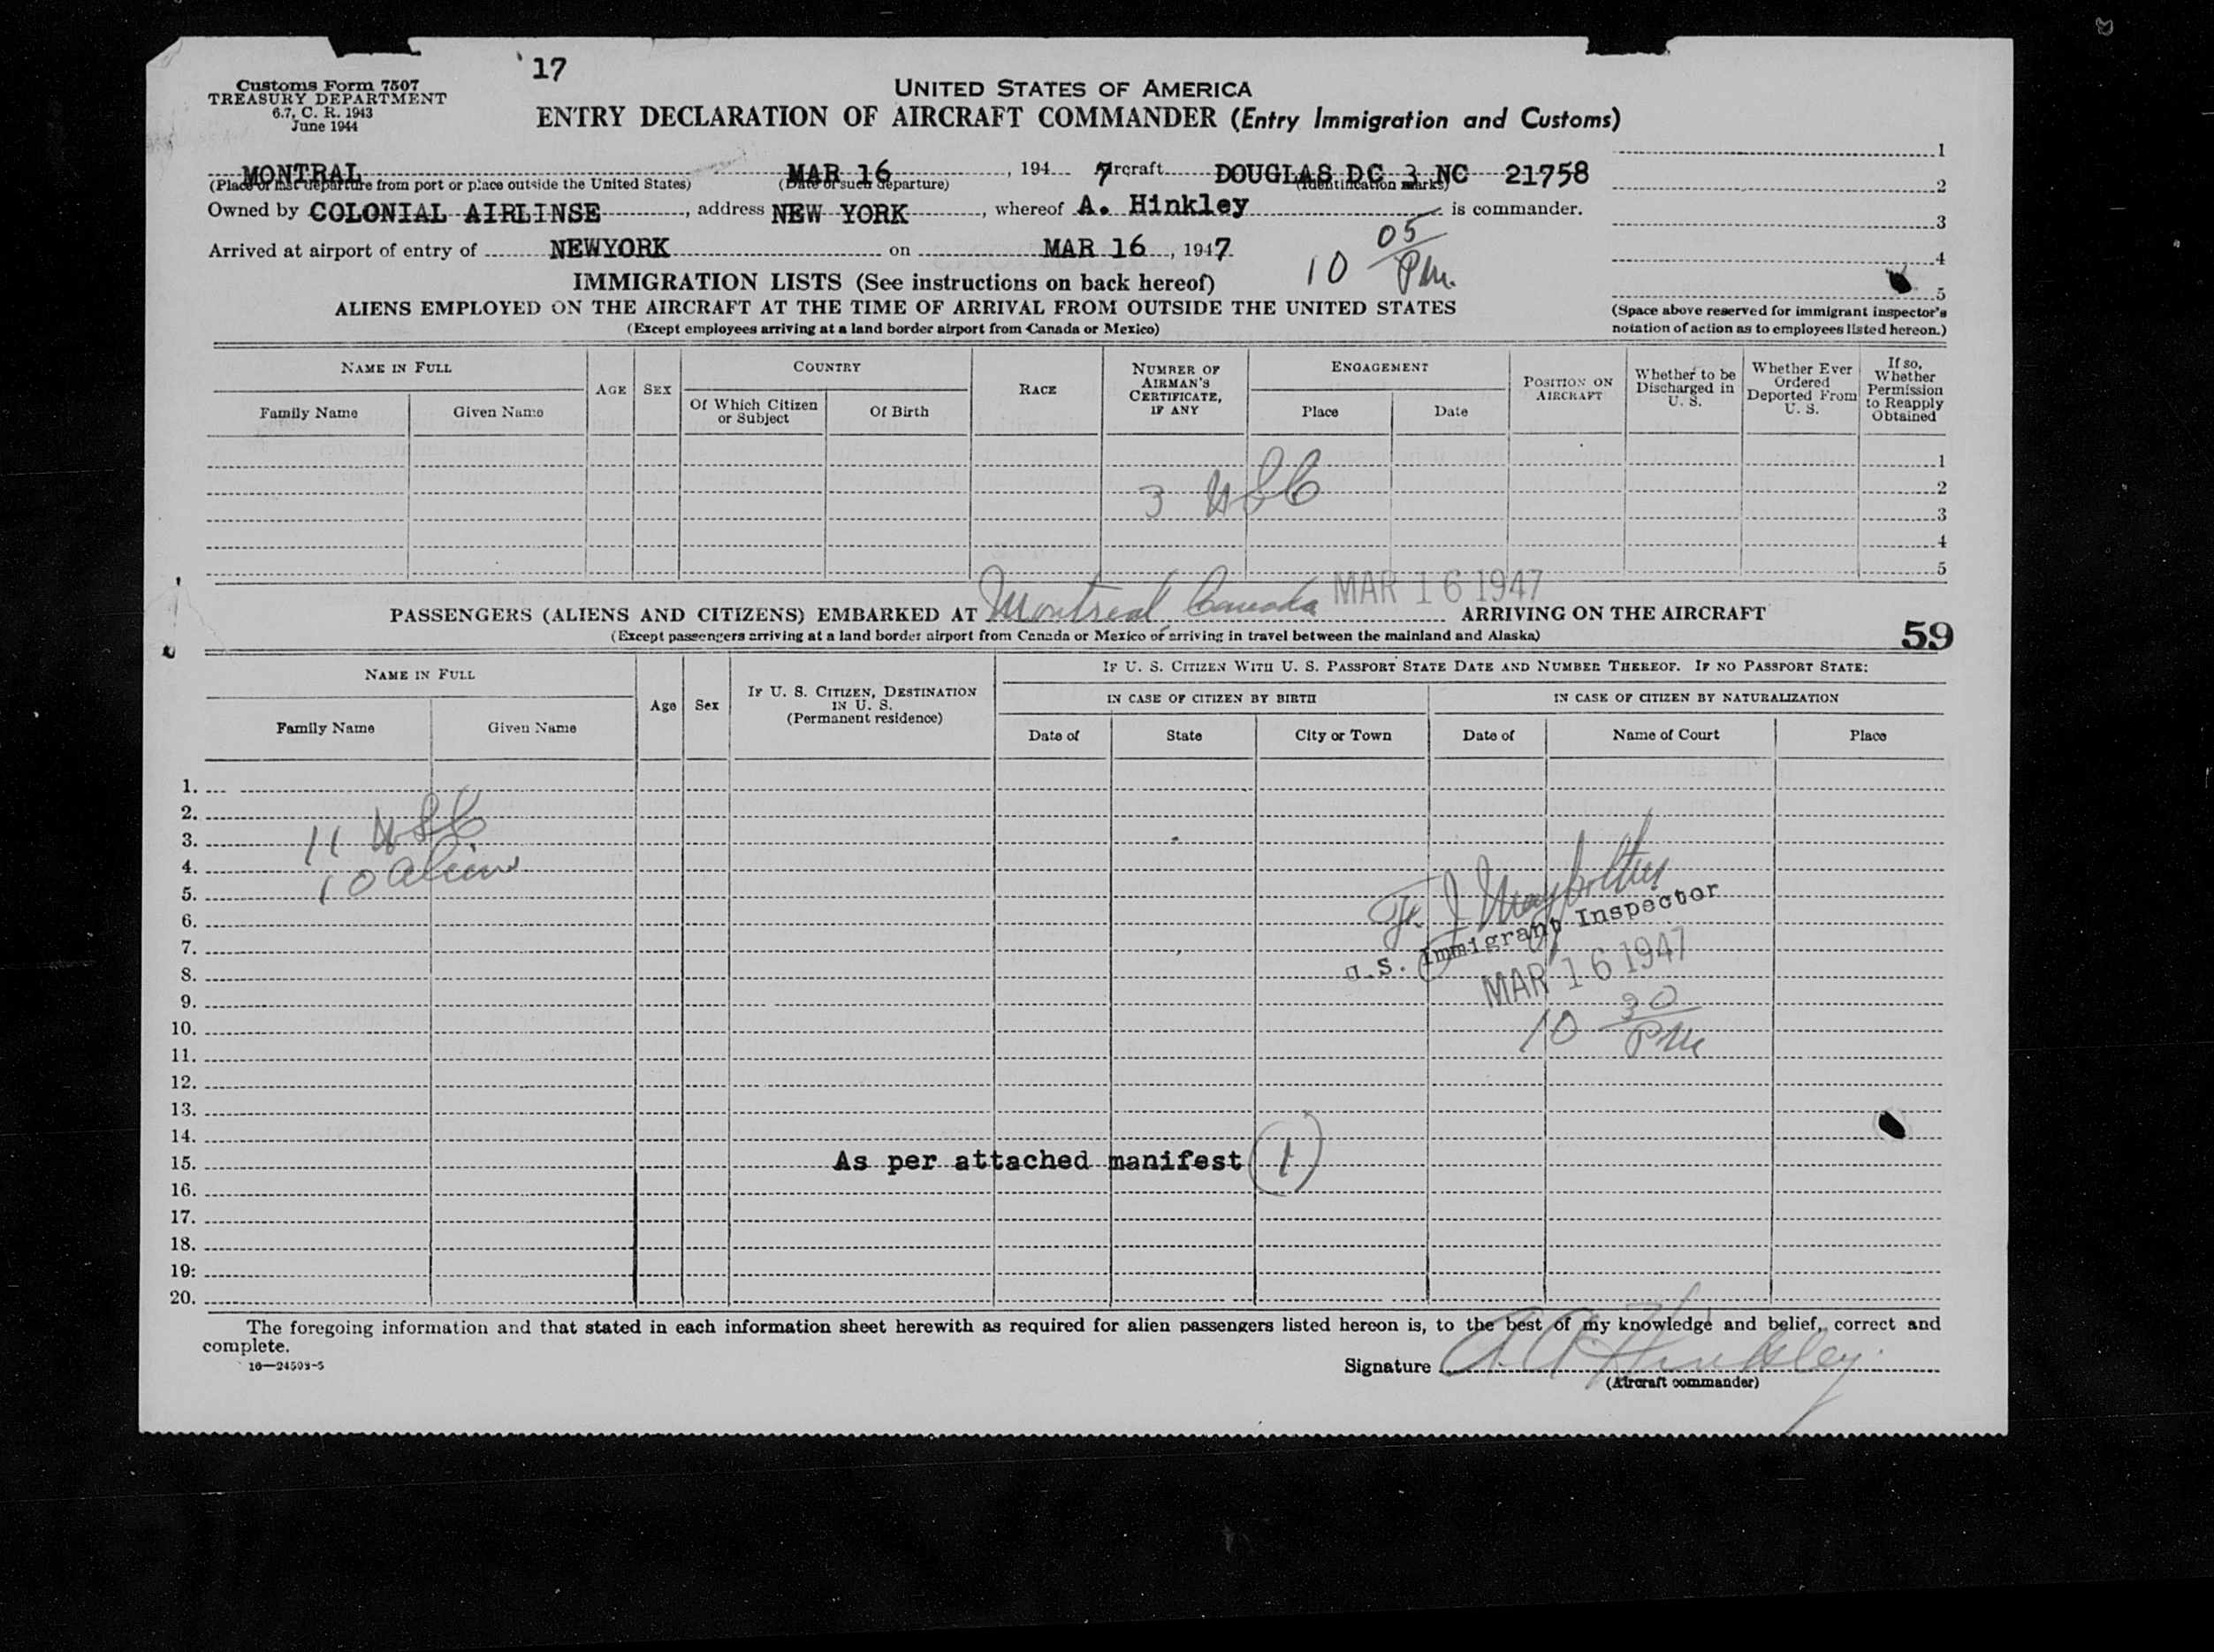 17
Customs Form 7507
TREASURY DEPARTMENT
6.7, C. R. 1943
June 1944
UNITED STATES OF AMERICA
ENTRY DECLARATION OF AIRCRAFT COMMANDER (Entry Immigration and Customs)
MONTRAL MAR 16, 194 7 Aircraft DOUGLAS DC 3 NC 21758
(Place of last departure from port or place outside the United States) (Date of such departure) (Identification marks)
Owned by COLONIAL AIRLINSE, address NEW YORK, whereof A. Hinkley is commander.
Arrived at airport of entry of NEWYORK on MAR 16, 1947
10 05 PM.
1
2
3
4
5
(Space above reserved for immigrant inspector's notation of action as to employees listed hereon.)
IMMIGRATION LISTS (See instructions on back hereof)
ALIENS EMPLOYED ON THE AIRCRAFT AT THE TIME OF ARRIVAL FROM OUTSIDE THE UNITED STATES
(Except employees arriving at a land border airport from Canada or Mexico)
NAME IN FULL
Family Name Given Name
AGE
SEX
COUNTRY
Of Which Citizen or Subject Of Birth
RACE
NUMBER OF AIRMAN'S CERTIFICATE, IF ANY
ENGAGEMENT
Place Date
POSITION ON AIRCRAFT
Whether to be Discharged in U. S.
Whether Ever Ordered Deported From U. S.
If so, Whether Permission to Reapply Obtained
1
2
3
4
5
3 USC
PASSENGERS (ALIENS AND CITIZENS) EMBARKED AT Montreal, Canada MAR 16 1947 ARRIVING ON THE AIRCRAFT
(Except passengers arriving at a land border airport from Canada or Mexico or arriving in travel between the mainland and Alaska)
59
NAME IN FULL
Family Name Given Name
Age
Sex
IF U. S. CITIZEN, DESTINATION IN U. S.
(Permanent residence)
IF U. S. CITIZEN WITH U. S. PASSPORT STATE DATE AND NUMBER THEREOF. IF NO PASSPORT STATE:
IN CASE OF CITIZEN BY BIRTH IN CASE OF CITIZEN BY NATURALIZATION
Date of State City or Town Date of Name of Court Place
1.
2.
3. 11 USC
4.
5. 10 Aliens
6.
7.
8.
9.
10.
11.
12.
13.
14.
15. As per attached manifest 1
16.
17.
18.
19.
20.
U.S. Immigrant Inspector
MAR 16 1947
10 30 PM
The foregoing information and that stated in each information sheet herewith as required for alien passengers listed hereon is, to the best of my knowledge and belief, correct and
complete.
16—24503-5
Signature A. A. Hinkley
(Aircraft commander)